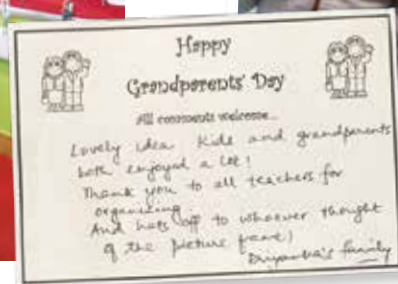 Happy
Grandparents' Day
All comments welcome...
Lovely idea. Kids and grandparents
both enjoyed a lot!
Thank you to all teachers for
organizing.
And hats off to whoever thought
of the picture frame!
family